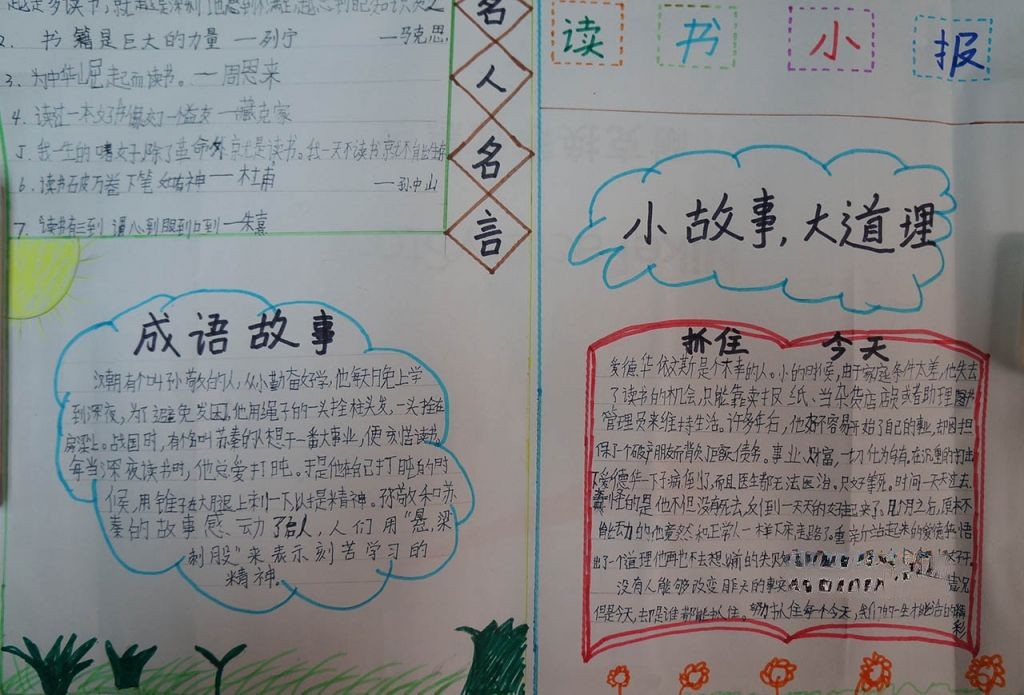 越是多读书,就越是深刻地感到不满足,越感到自己知识贫乏
——马克思
2. 书籍是巨大的力量——列宁
3. 为中华崛起而读书。——周恩来
4. 读过一本好书像交了一个益友——臧克家
5. 我一生的嗜好,除了革命外就是读书。我一天不读书就不能生存
——孙中山
6. 读书破万卷 下笔如有神——杜甫
7. 读书有三到 谓心到眼到口到——朱熹
名人名言
读书小报
成语故事
汉朝有个叫孙敬的人,从小勤奋好学,他每天晚上学
到深夜,为了避免发困,他用绳子的一头拴柱头发,一头拴在
房梁上。战国时,有个名叫苏秦的人想干一番大事业,便刻苦读书
每当深夜读书时,他总爱打盹。于是他在自己打盹的时
候,用锥子在大腿上刺一下以提精神。孙敬和苏
秦的故事感动了后人,人们用“悬梁
刺股”来表示刻苦学习的
精神。
小故事,大道理
抓住 今天
爱德华·依文斯是个不幸的人。小的时候,由于家庭条件太差,他失去
了读书的机会,只能靠卖报纸、当杂货店店员或者助理图书
管理员来维持生活。许多年后,他好不容易开始了自己的事业,却因担
保了个破产朋友而背负巨额债务。事业、财富,一切化为乌有。在沉重的打击
下爱德华一下子病倒了,而且医生都无法医治。只好等死。时间一天天过去,
的是他不但没有死去,反倒一天天的好起来了。几个月之后,原本不
能活动的他竟然和正常人一样下床走路了。重新站起来的爱德华悟
出了一个道理他再也不去想以前的失败
没有人能够改变昨天的事实
但是今天,却是谁都能抓住。努力抓住每个今天,我们的一生才能活的精彩